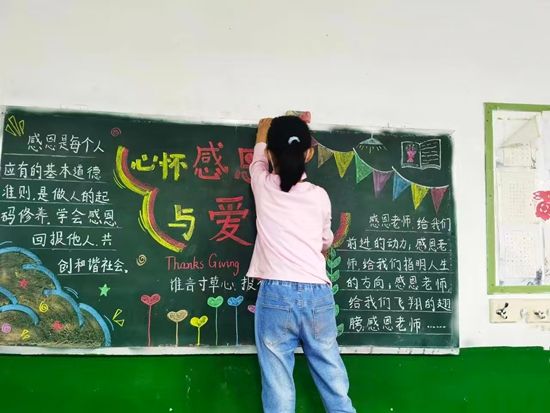 感恩是每个人
应有的基本道德
准则,是做人的起
码修养.学会感恩
回报他人.共
创和谐社会.
心怀感恩
与爱
Thanks Giving
谁言寸草心,报
感恩老师,给我们
前进的动力,感恩老
师,给我们指明人生
的方向,感恩老师
给我们飞翔的翅
膀,感恩老师......